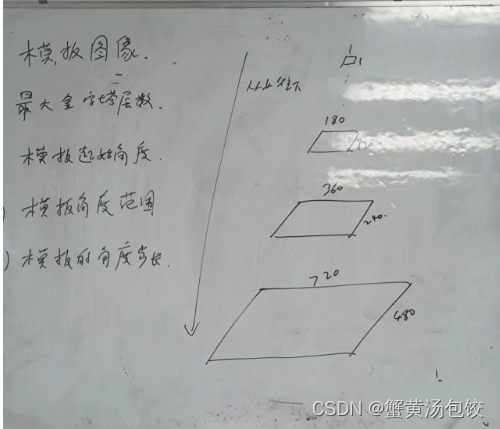 模板图像.
最大金字塔层数.
模板起始角度.
) 模板角度范围
) 模板的角度步长.
从上往下
1
1
180
360
240.
720
480
CSDN @蟹黄汤包饺